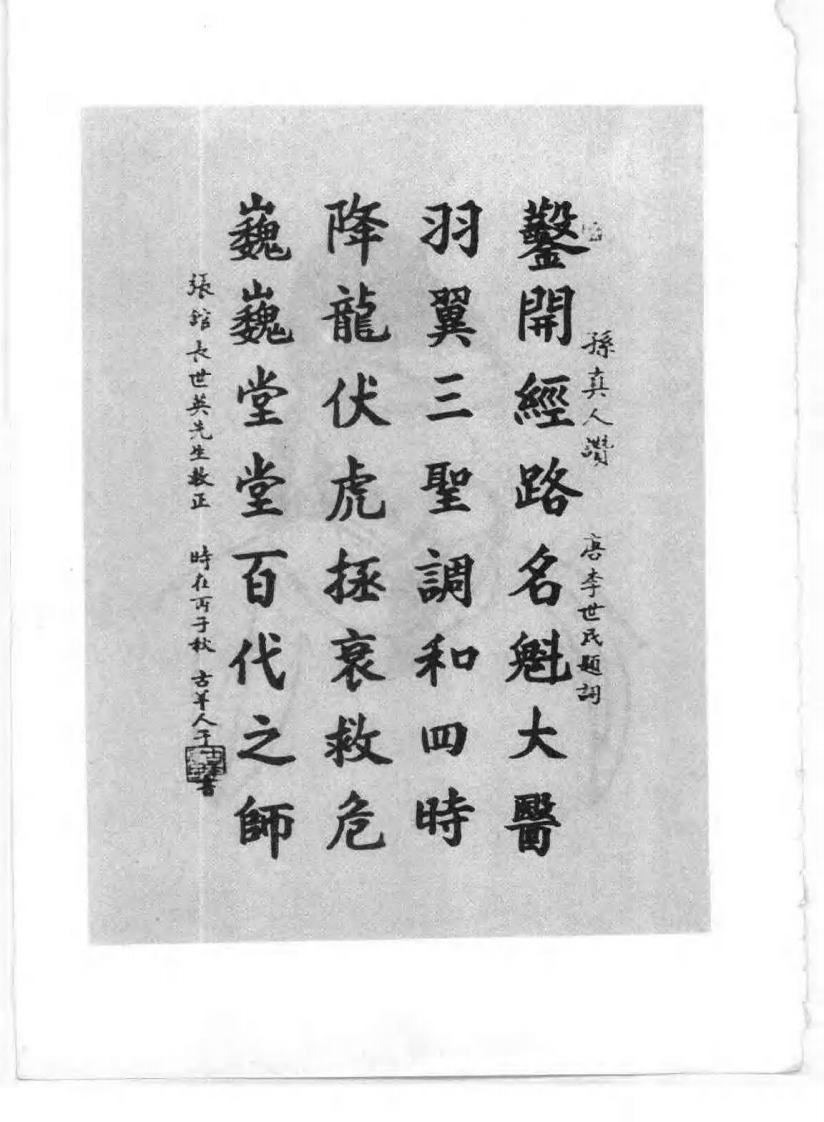 孫真人讚 唐李世民題詞
鑿開經路名魁大醫
羽翼三聖調和四時
降龍伏虎拯衰救危
巍巍堂堂百代之師
張館長世英先生教正 時在丙子秋 古羊人于 書